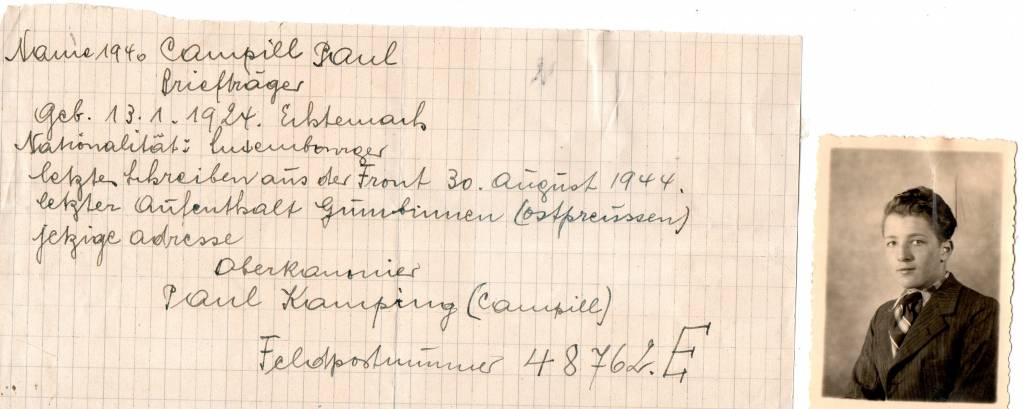 Name 1940 Campill Paul
Briefträger
Geb. 13.1.1924. Echternach
Nationalität: Luxembourger
letzte Schreiben aus der Front 30. August 1944.
letzter Aufenthalt Gumbinnen (Ostpreussen)
jetzige adresse
Oberkanonier
Paul Kamping (Campill)
Feldpostnummer 48762.E